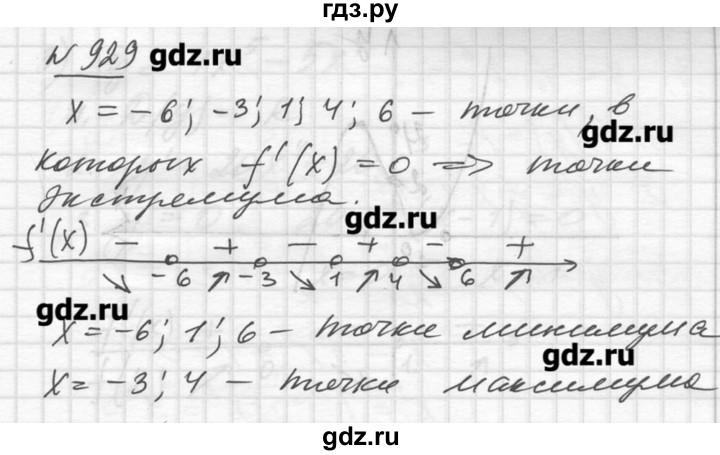 гдз.ру
N 929 gdz.ru
x = -6; -3; 1; 4; 6 - точки, в
gdz.ru
которых f'(x) = 0 => точки
экстремума.
gdz.ru
f'(x) - + - + - +
↘ -6 ↗ -3 ↘ 1 ↗ 4 ↘ 6 ↗
gdz.ru
x = -6; 1; 6 - точки минимума
gdz.ru
x = -3; 4 - точки максимума
gdz.ru